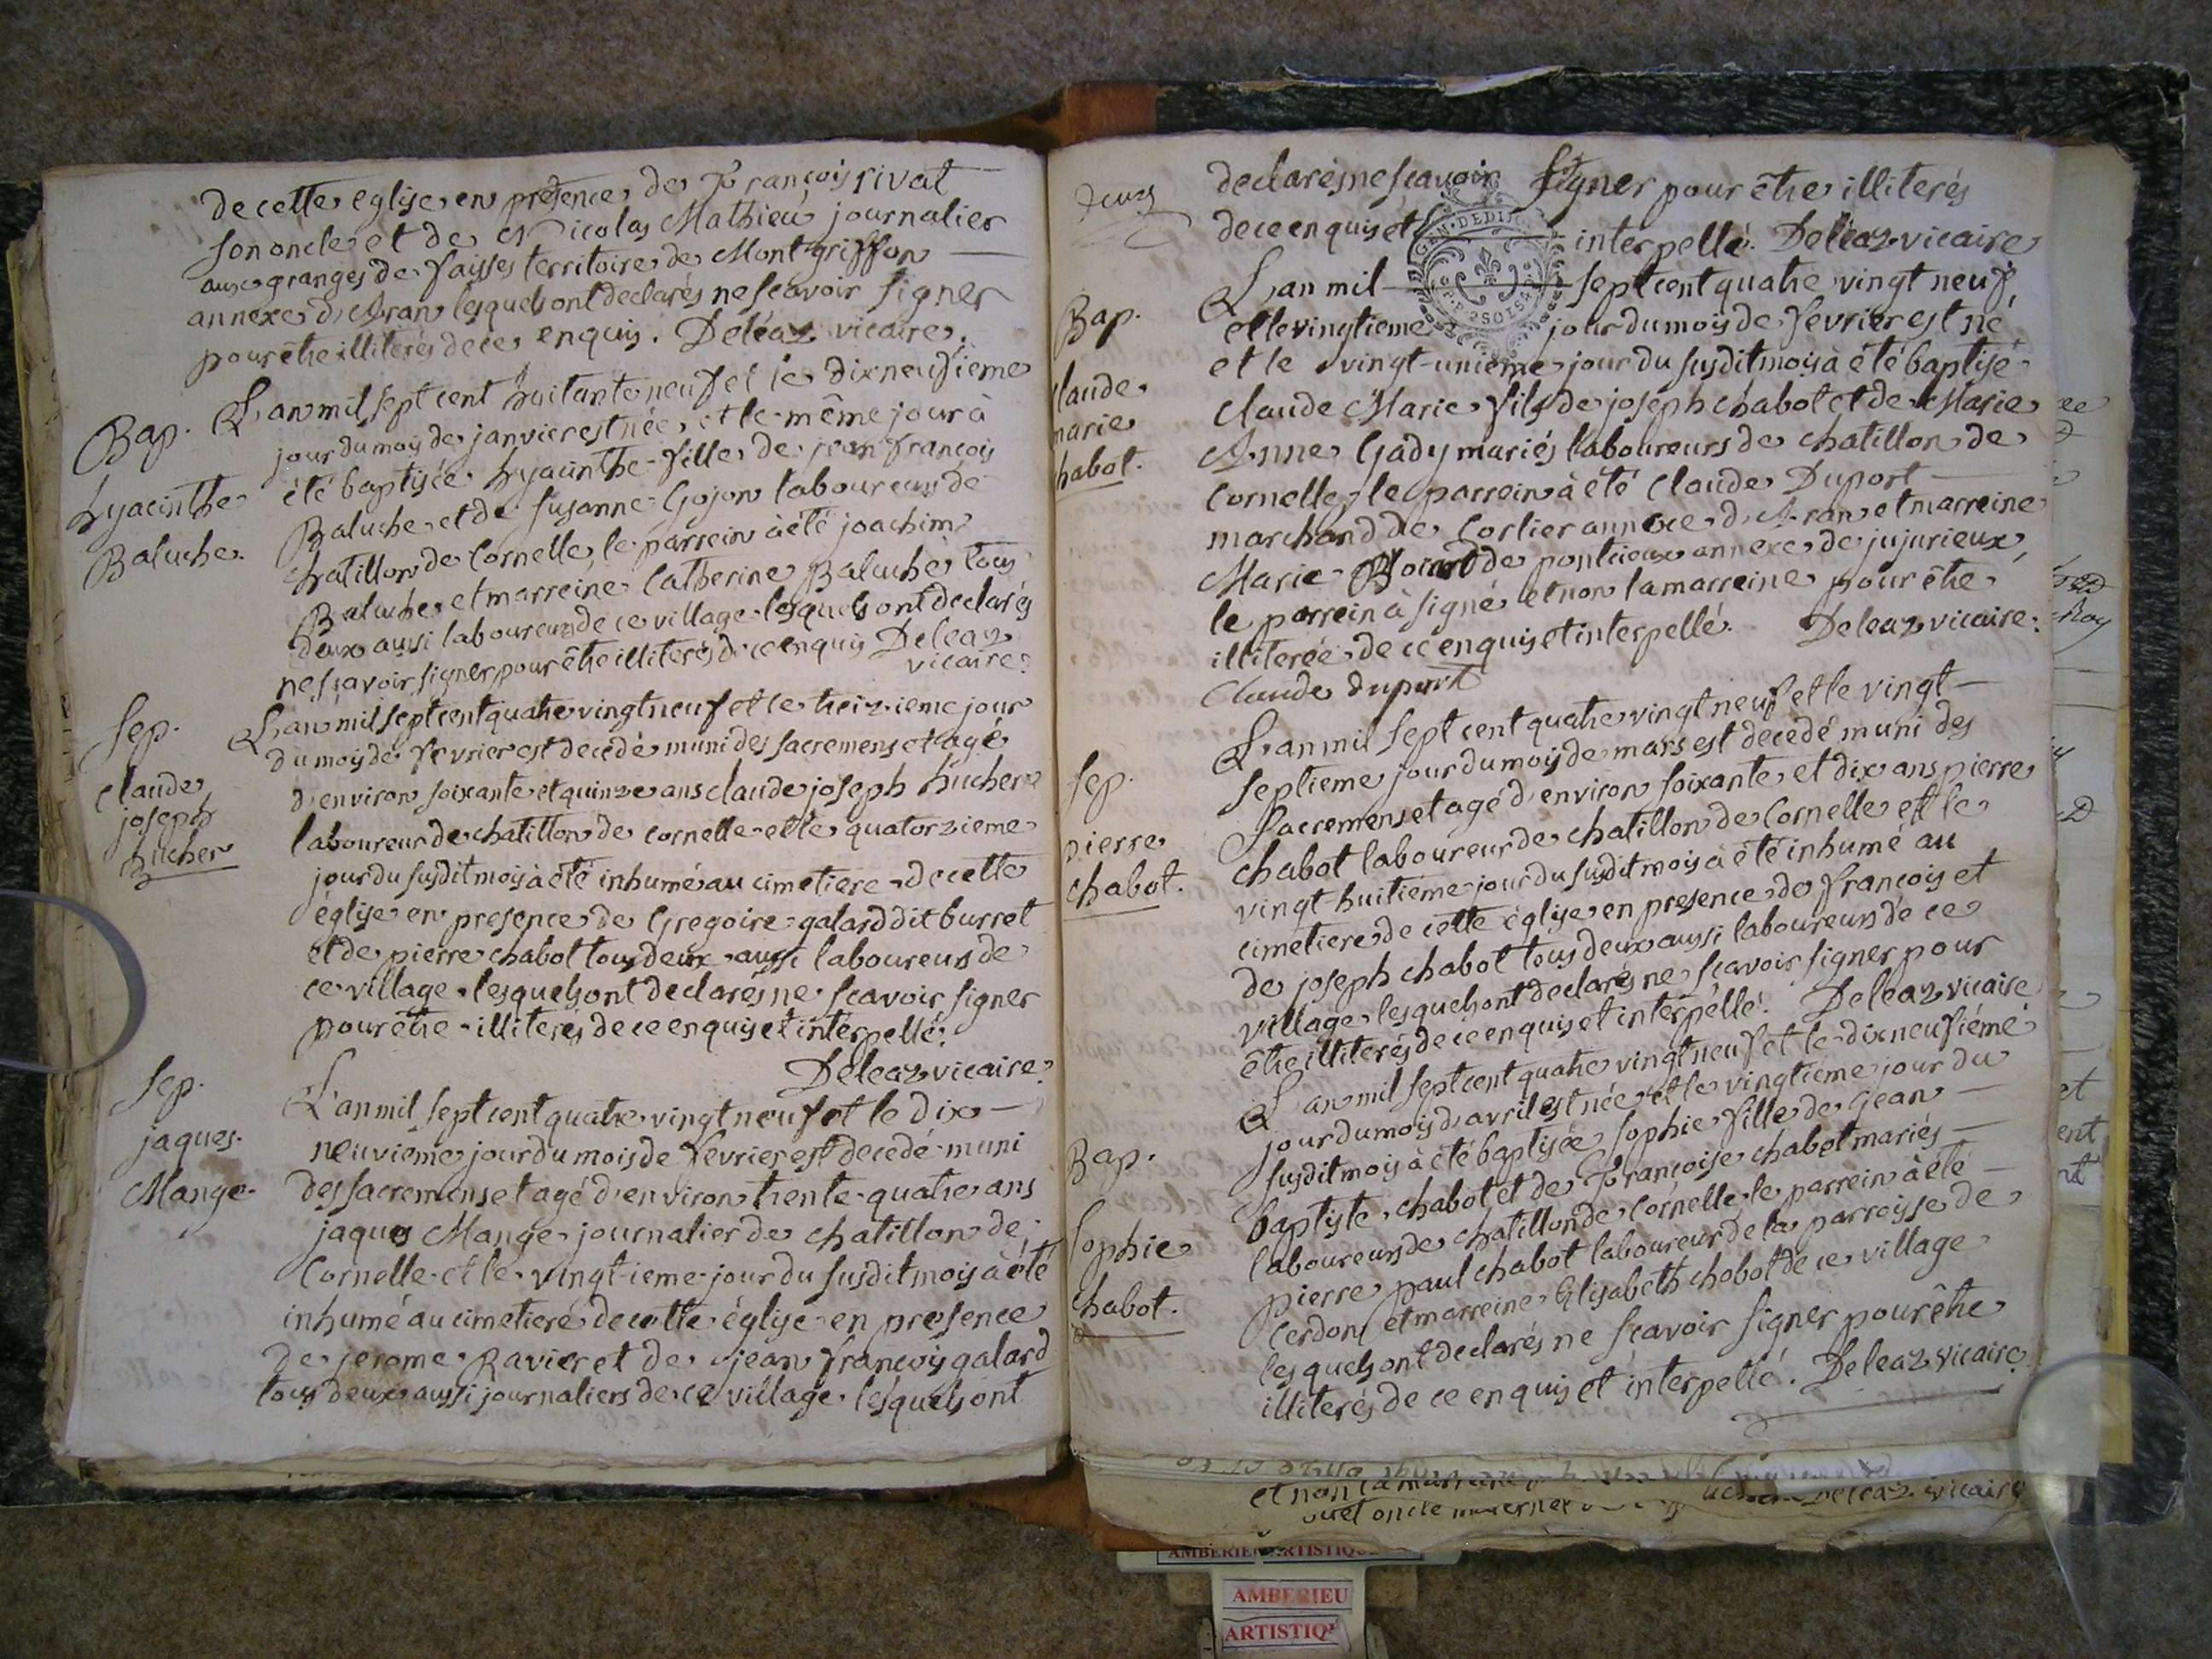 de cette eglise en presence de François rivat
son oncle et de Nicolas Mathieu journalier
aux granges de faisses territoire de Montgriffon
annexe d'Aran lesquels ont declarés ne scavoir signer
pour être illiterés de ce enquis. Deléaz vicaire.
Bap.
hyacinthe
Baluche.
L'an mil sept cent huitante neuf et le dixneufieme
jour du mois de janvier est née, et le même jour à
été baptisée hyacinthe fille de jean françois
Baluche et de susanne Gojon laboureurs de
chatillon de Cornelle, le parrein à été joachim
Baluche et marreine Catherine Baluche tous
deux aussi laboureurs de ce village lesquels ont declarés
ne scavoir signer pour être illiterés de ce enquis Deleaz
vicaire.
Sep.
claude
joseph
hucher
L'an mil sept cent quatre vingt neuf et le treizieme jour
du mois de fevrier est decedé muni des sacremens et agé
d'environ soixante et quinze ans claude joseph hucher
laboureur de chatillon de cornelle et le quatorzieme
jour du susdit mois à été inhumé au cimetiere de cette
église en presence de Gregoire galard dit burret
et de pierre chabot tous deux aussi laboureurs de
ce village lesquels ont declarés ne scavoir signer
pour être illiterés de ce enquis et interpellé.
Deleaz vicaire.
Sep.
jaques
Mange
L'an mil sept cent quatre vingt neuf et le dix
neuvieme jour du mois de fevrier est decedé muni
des sacremens et agé d'environ trente quatre ans
jaques Mange journalier de chatillon de
Cornelle et le vingtieme jour du susdit mois à été
inhumé au cimetiere de cette église en presence
de jerome Ravier et de jean françois galard
tous deux aussi journaliers de ce village lesquels ont
deux
declarés ne scavoir signer pour être illiterés
de ce enquis et interpellé. Deleaz vicaire
Bap.
claude
marie
habot.
L'an mil sept cent quatre vingt neuf,
et le vingtieme jour du mois de fevrier est né
et le vingt-unieme jour du susdit mois à été baptisé
claude Marie fils de joseph chabot et de Marie
Anne Gady mariés laboureurs de chatillon de
Cornelle, le parrein à été Claude Duport
marchand de Corlier annexe d'Aran et marreine
Marie de poncieux annexe de jujurieux,
le parrein à signé et non la marreine pour être
illiterée de ce enquis et interpellé. Deleaz vicaire.
Claude duport
Sep.
pierre
chabot.
L'an mil sept cent quatre vingt neuf et le vingt
septieme jour du mois de mars est decedé muni des
sacremens et agé d'environ soixante et dix ans pierre
chabot laboureur de chatillon de Cornelle et le
vingt huitieme jour du susdit mois à été inhumé au
cimetiere de cette église en presence de françois et
de joseph chabot tous deux aussi laboureurs de ce
village lesquels ont declarés ne scavoir signer pour
être illiterés de ce enquis et interpellé. Deleaz vicaire
Bap.
Sophie
habot.
L'an mil sept cent quatre vingt neuf et le dixneufiéme
jour du mois d'avril est née et le vingtieme jour du
susdit mois à été baptisée Sophie fille de jean
baptiste chabot et de Françoise chabot mariés
laboureurs de chatillon de Cornelle, le parrein à été
pierre paul chabot laboureur de la parroisse de
Cerdon, et marreine Elisabeth chabot de ce village
lesquels ont declarés ne scavoir signer pour être
illiterés de ce enquis et interpellé. Deleaz vicaire.
et non la marreine Deleaz vicaire
oncle maternel
GEN. DEDIT
2 SOLS
AMBERIEU ARTISTIQUE
AMBERIEU
ARTISTIQ